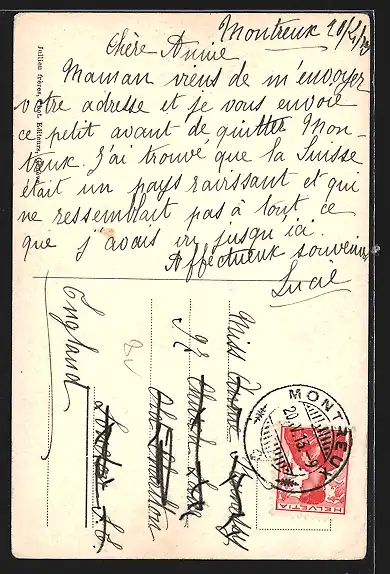 Montreux 20/
Chère Annie
Maman viens de m'envoyer
votre adresse et je vous envoie
ce petit avant de quitter Mon-
treux. J'ai trouvé que la Suisse
était un pays ravissant et qui
ne ressemblait pas à tout ce
que j'avais vu jusqu'ici.
Affectueux souvenir
Lucie
Jullien frères, Phot. Editeurs, Genève
Miss
England
MONTREUX
HELVETIA